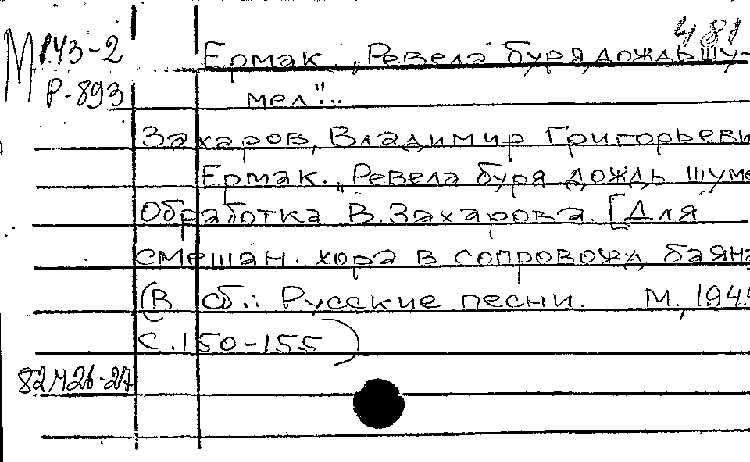 481
М Р43-2
Р-893
Ермак. „Ревела буря, дождь шу-
мел"..
Захаров, Владимир Григорьеви
Ермак. „Ревела буря дождь шуме
Обработка В. Захарова. [Для
смешан. хора в сопровожд. баяна
(В сб.: Русские песни. М., 194
С. 150-155)